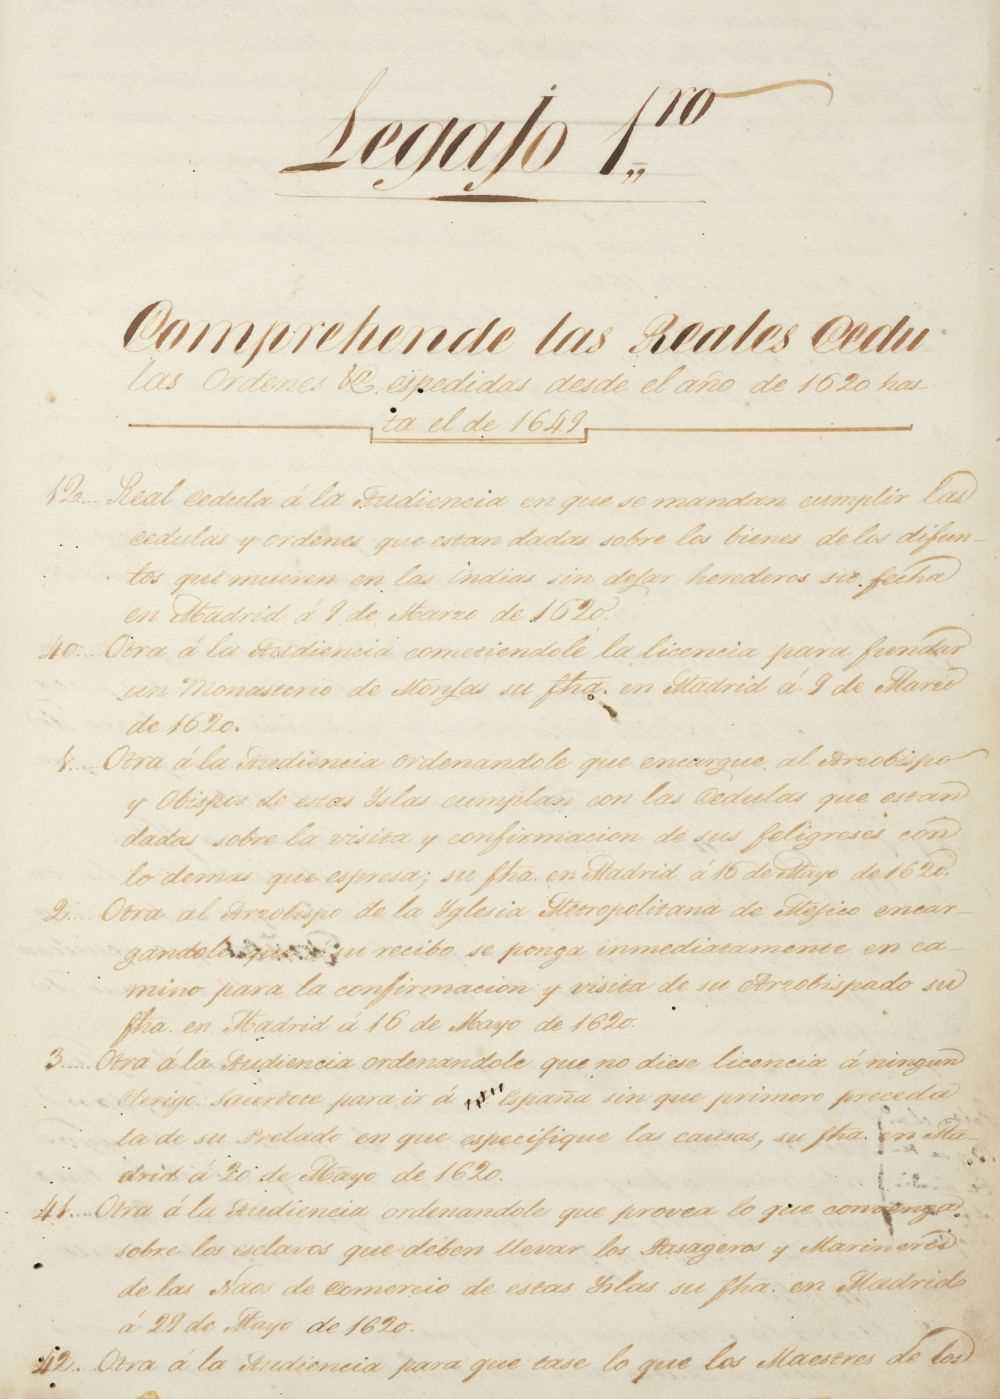 Legajo 1,,ro
Comprehende las Reales Cedu
las Ordenes &C. espedidas desde el año de 1620 has-
ta el de 1649
12.... Real Cedula á la Audiencia en que se mandan cumplir las
cedulas y ordenes que estan dadas sobre los bienes de los difun-
tos que mueren en las Indias sin dejar herederos su fecha
en Madrid á 9 de Marzo de 1620.
40.... Otra á la Audiencia cometiendole la licencia para fundar
un Monasterio de Monjas su fha. en Madrid á 9 de Marzo
de 1620.
1..... Otra á la Audiencia ordenandole que encargue al Arzobispo
y Obispos de estas Yslas cumplan con las Cedulas que estan
dadas sobre la visita y confirmacion de sus feligreses con
lo demas que espresa; su fha. en Madrid á 16 de Mayo de 1620.
2..... Otra al Arzobispo de la Yglesia Metropolitana de Mejico encar-
gandole que su recibo se ponga inmediatamente en ca-
mino para la confirmacion y visita de su Arzobispado su
fha. en Madrid á 16 de Mayo de 1620.
3..... Otra á la Audiencia ordenandole que no diese licencia á ningun
Clerigo Sacerdote para ir á España sin que primero preceda
la de su Prelado en que especifique las causas, su fha. en Ma-
drid á 20 de Mayo de 1620.
41.... Otra á la Audiencia ordenandole que provea lo que convenga
sobre los esclavos que deben llevar los Pasageros y Marineros
de las Naos de Comercio de estas Yslas su fha. en Madrid
á 29 de Mayo de 1620.
42. Otra á la Audiencia para que tase lo que los Maestres de los